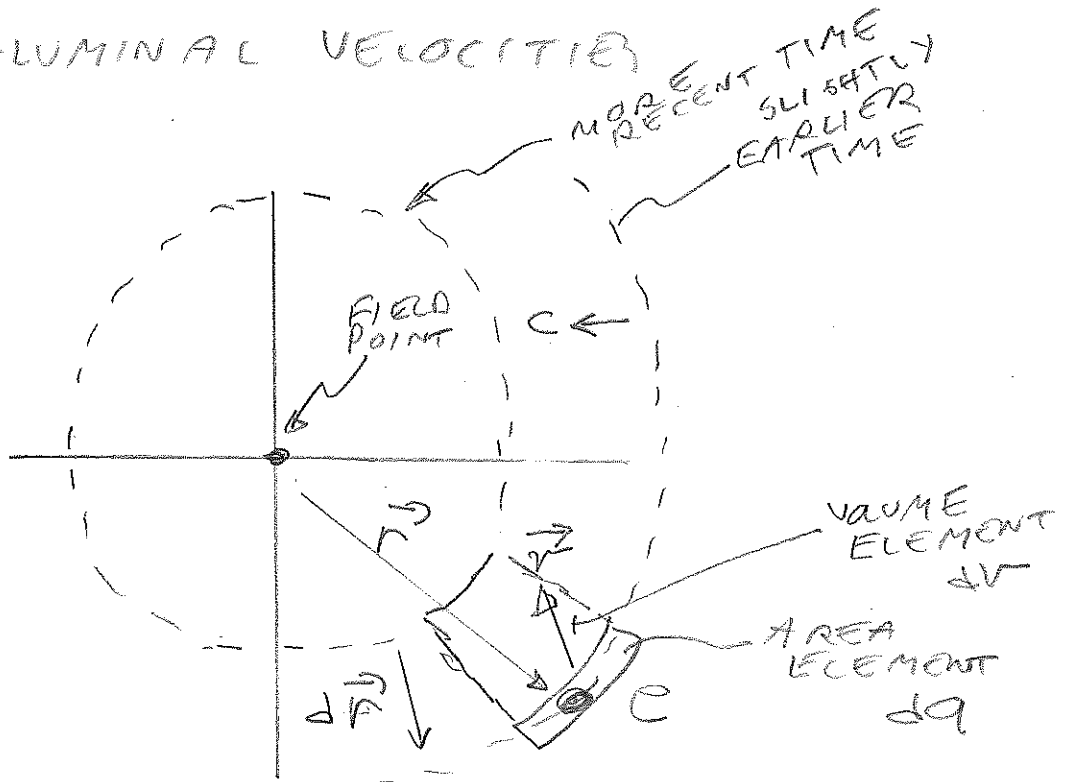 -LUMINAL VELOCITIES
MORE
RECENT TIME
SLIGHTLY
EARLIER
TIME
FIELD
POINT
C
r
v
VOLUME
ELEMENT
dV
AREA
ELEMENT
da
e
dr